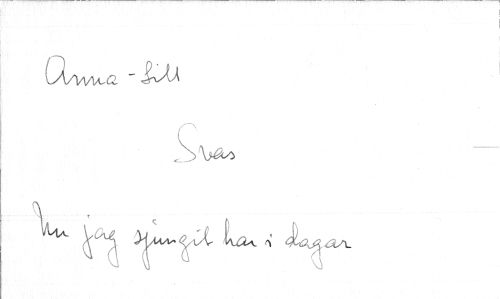 Anna-Lill
Svas
Nu jag sjungit har i dagar